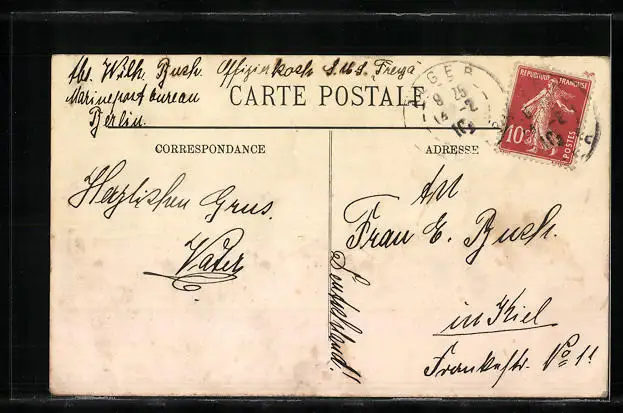 Abs. Wilh. Busch. Offizierkoch S.M.S. Freya
Marinepostbureau
Berlin.
CARTE POSTALE
REPUBLIQUE FRANÇAISE
10c
POSTES
CORRESPONDANCE
ADRESSE
Herzlichen Grus.
Vater
An
Frau E. Busch.
in Kiel
Frankestr. No 11
Deutschland!!